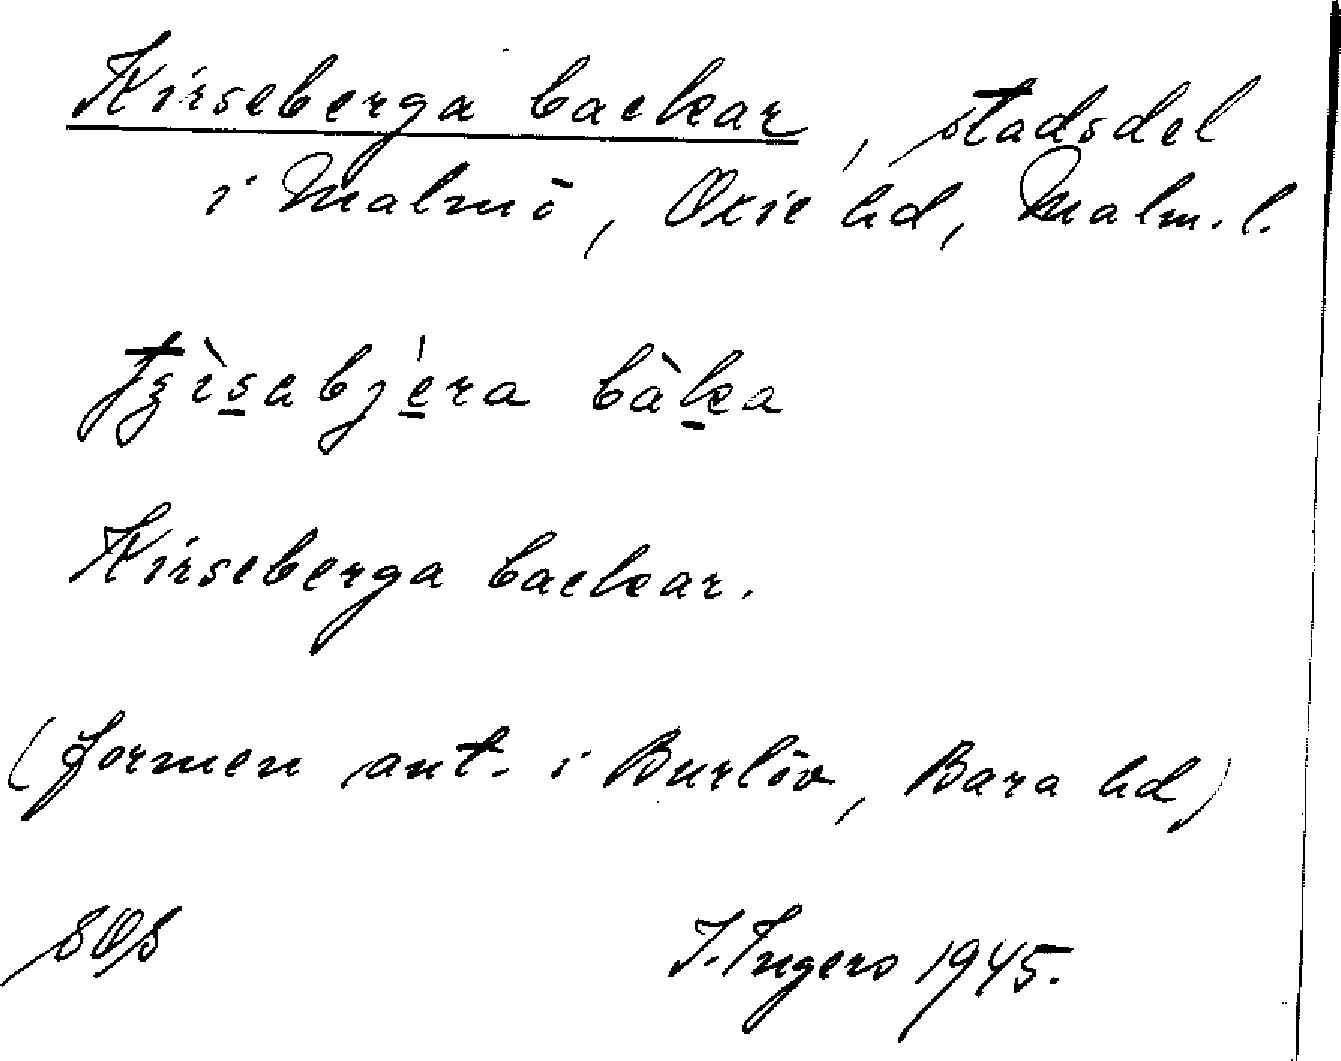 Kirseberga backar, stadsdel
i Malmö, Oxie hd, Malm. l.
Kirseberga backar.
(formen ant. i Burlöv, Bara hd)
SOS
I. Ingers 1945.